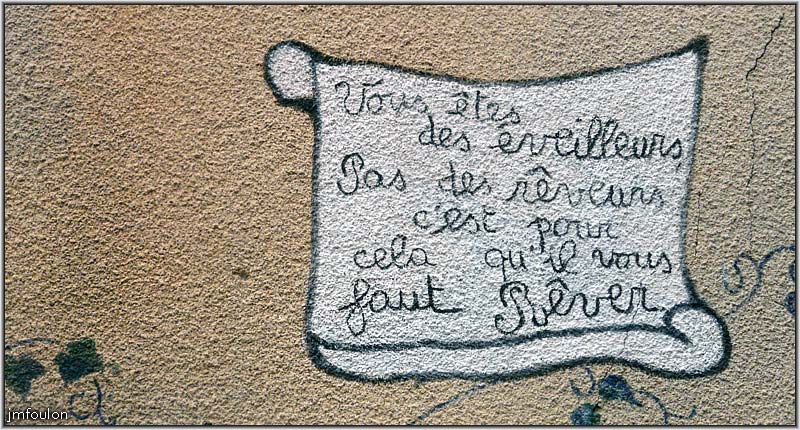 Vous êtes
des éveilleurs,
Pas des rêveurs
c'est pour
cela qu'il vous
faut Rêver.
jmfoulon